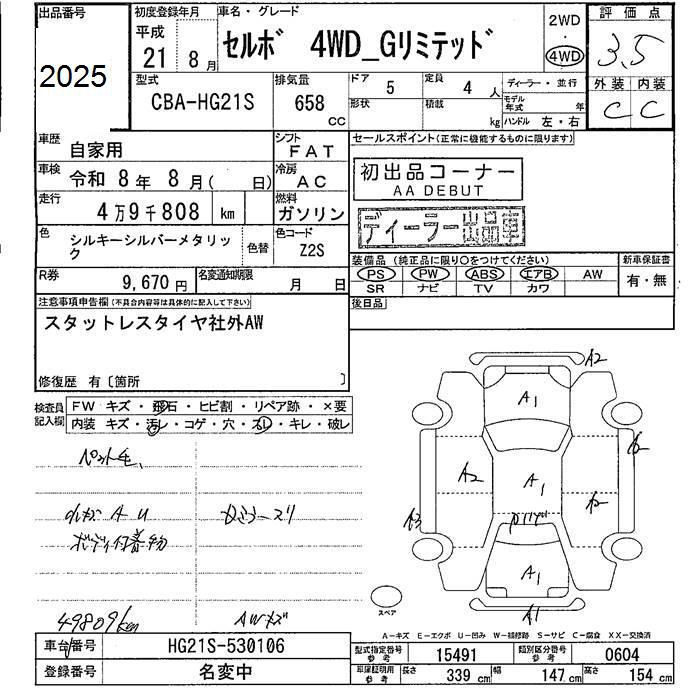 出品番号
2025
初度登録年月
平成
21 8月
車名・グレード
セルボ 4WD_Gリミテッド
2WD
・
4WD
評価点
3.5
外装 内装
C C
型式
CBA-HG21S
排気量
658
CC
ドア 5
定員 4 人
形状
積載
kg
ディーラー・並行
モデル年式 年
ハンドル 左・右
車歴
自家用
シフト
FAT
車検
令和 8年 8月( 日)
冷房
AC
走行
4万9千808 km
燃料
ガソリン
色
シルキーシルバーメタリック
色替
色コード
Z2S
R券
9,670円
名変通知期限
月 日
セールスポイント(正常に機能するものに限ります)
初出品コーナー
AA DEBUT
ディーラー出品車
装備品(純正品に限り○をつけてください)
新車保証書
PS PW ABS エアB AW
SR ナビ TV カワ
有・無
後日品
注意事項申告欄(不具合内容等は具体的に記入して下さい)
スタットレスタイヤ社外AW
修復歴 有〔箇所 〕
検査員記入欄
FW キズ・飛石・ヒビ割・リペア跡・×要
内装 キズ・汚レ・コゲ・穴・スレ・キレ・破レ
ペット毛、
A U
ボディ付着物
49809km
AWキズ
A2
A1
A2
A2
A1
A2
A3
A1
A1
スペア
A-キズ E-エクボ U-凹み W-補修跡 S-サビ C-腐食 XX-交換済
車台番号
HG21S-530106
登録番号
名変中
型式指定番号
参考
15491
類別区分番号
参考
0604
車庫証明用
参考
長さ 339 cm
幅 147 cm
高さ 154 cm